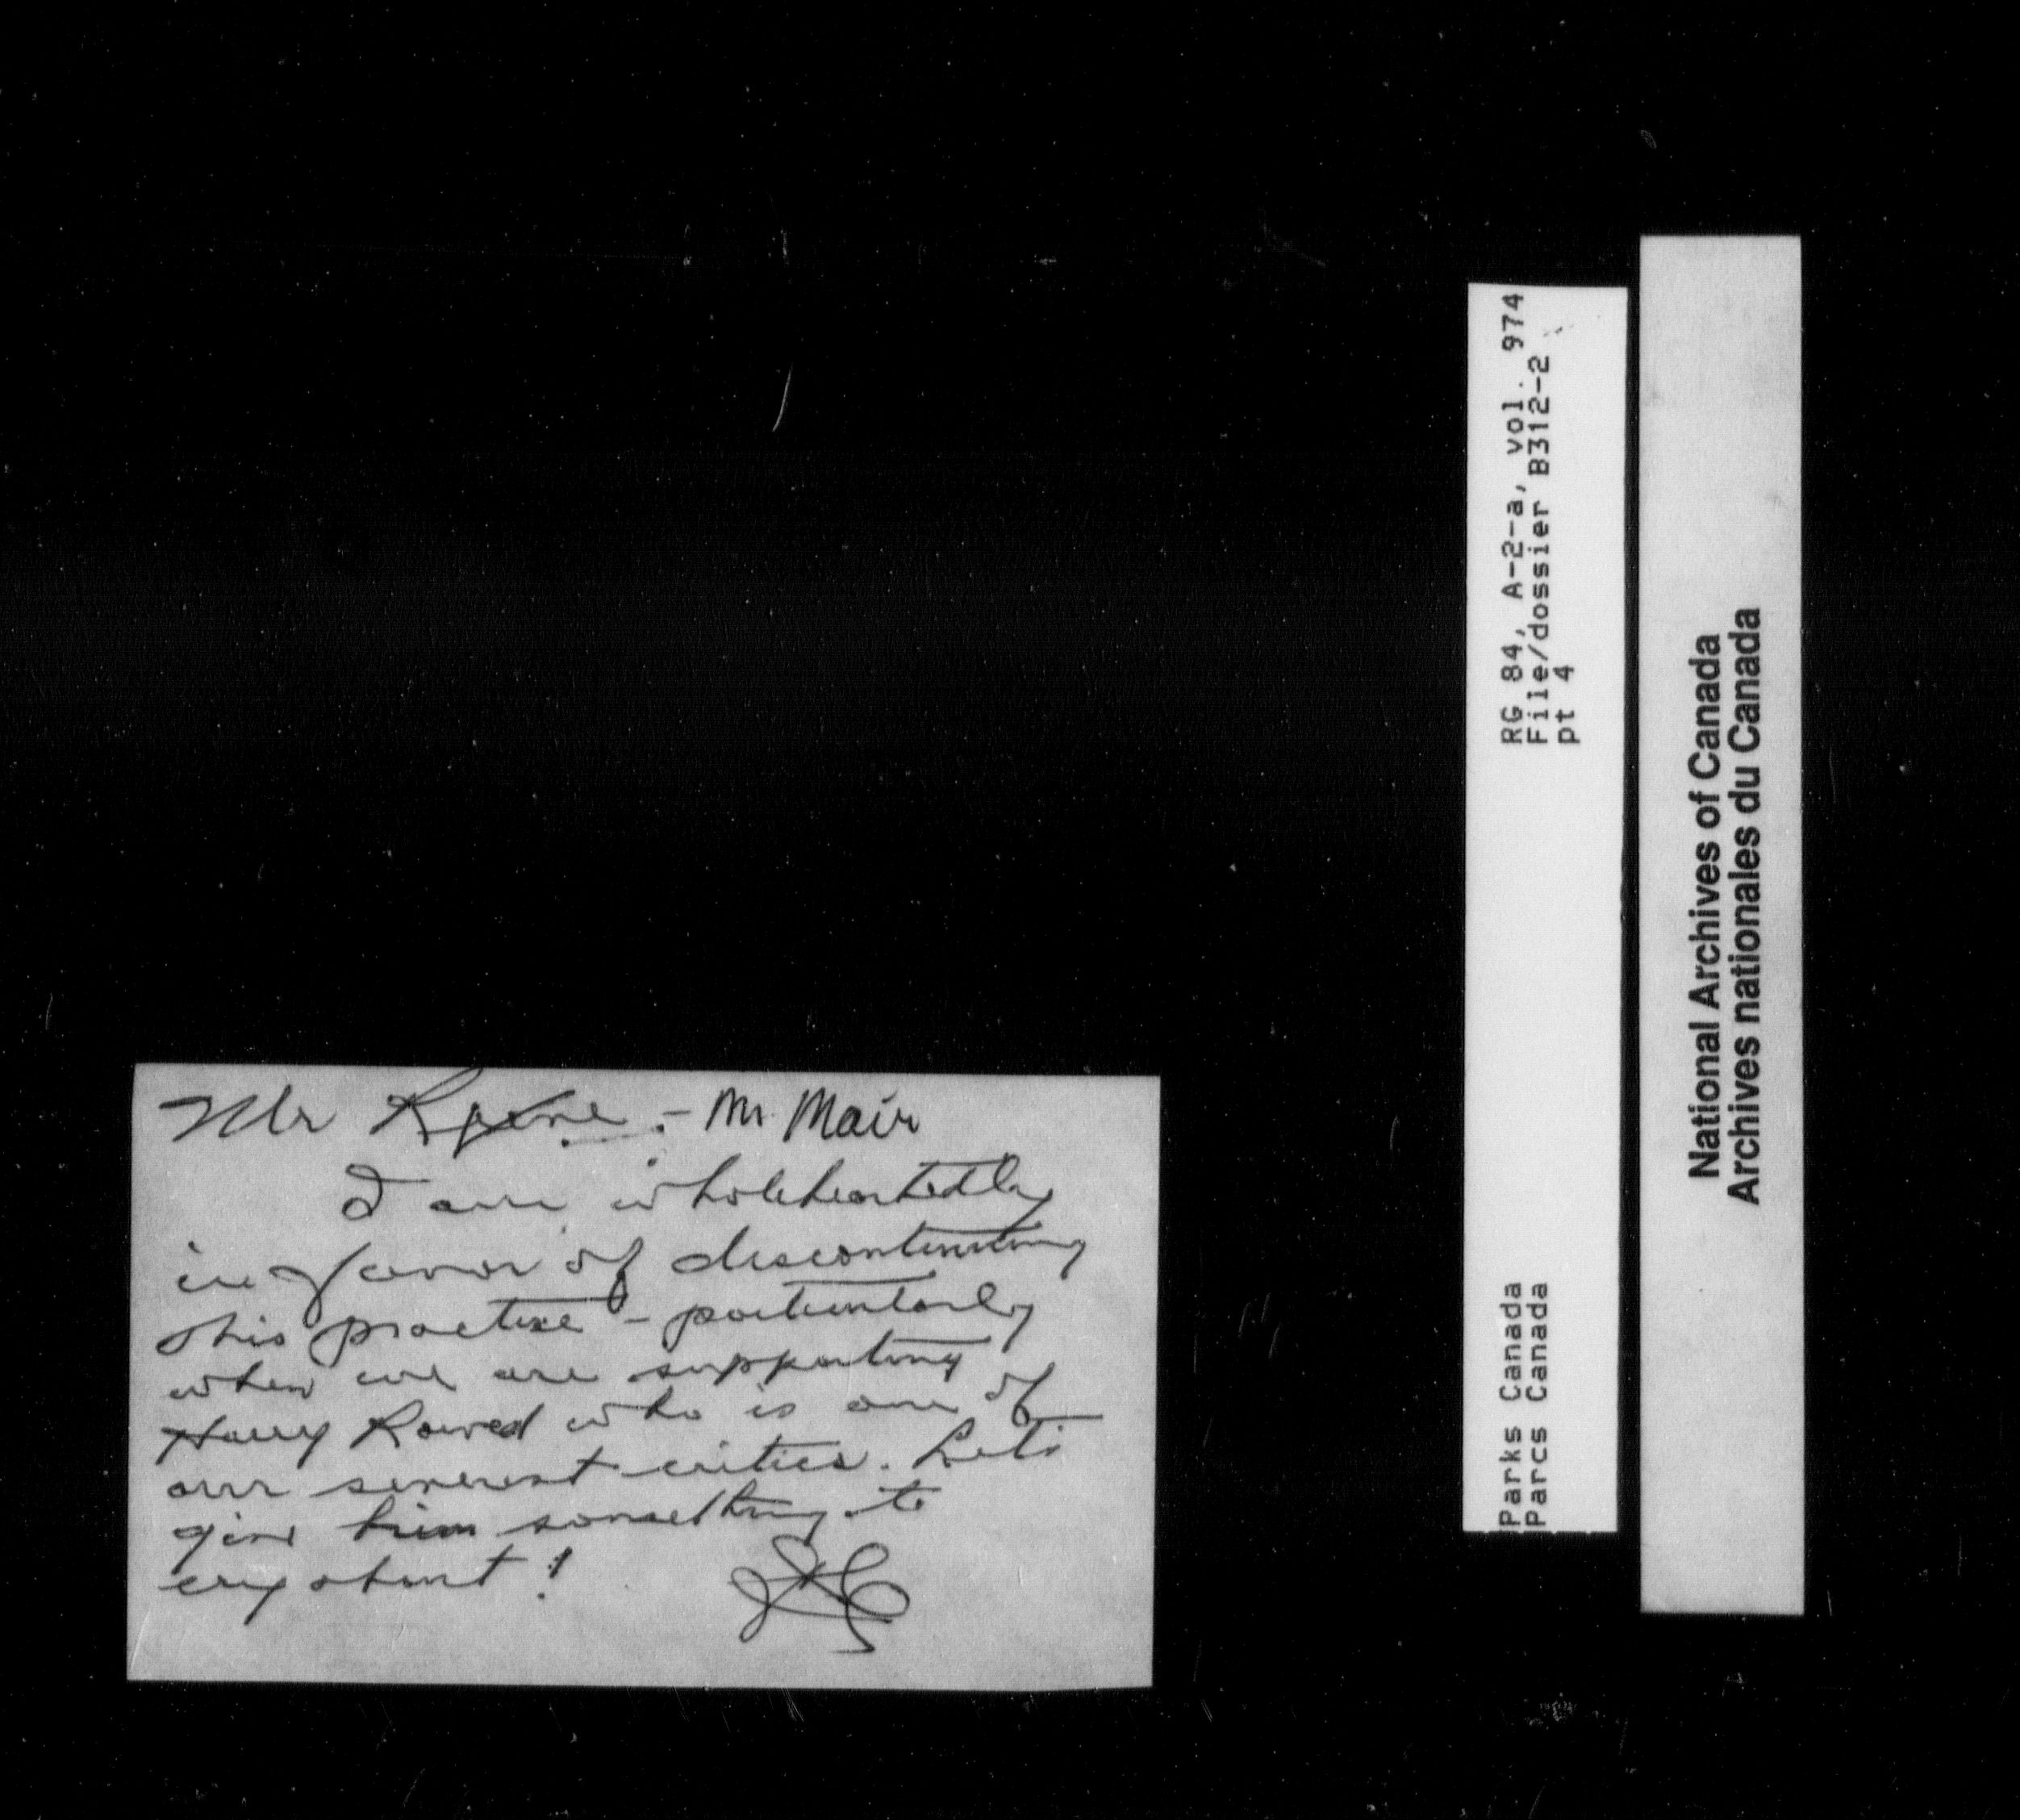 Mr - Mr. Mair
I am wholeheartedly
in favor of discontinuing
this practise - particularly
when we are supporting
Harry Rowed who is one of
our severest critics. Let's
give him something to
cry about!
RG 84, A-2-a, vol. 974
File/dossier B312-2
pt 4
Parks Canada
Parcs Canada
National Archives of Canada
Archives nationales du Canada